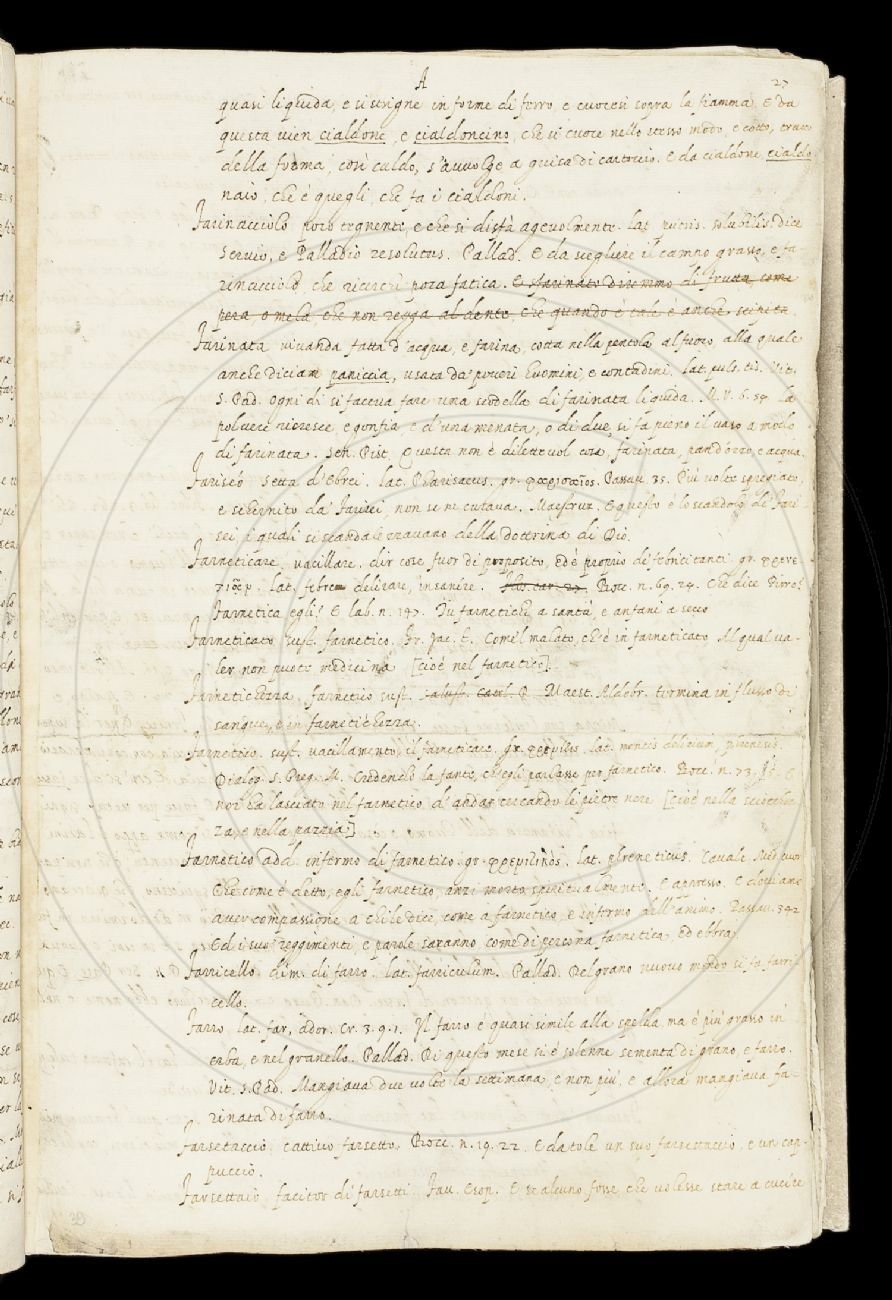 A
27
quasi liquida, e si strigne in forme di ferro, e cuocesi sopra la fiamma. E da
questa vien cialdone, e cialdoncino, che si cuoce nello stesso modo, e cotto, e
della forma, così caldo, s'avvolge a guisa di cartoccio. E da cialdone cialdo
naio, che è quegli, che fa i cialdoni.
Farinacciolo poco tegnente, e che si disfà agevolmente. Lat. solubilis dice
Servio, e Palladio resolutus. Pallad. E da scegliere il campo grasso, e fa-
rinacciolo, che ricerchi poca fatica. E sfarinato diremmo di frutta, come
pera, o mela, che non regga al dente, che quando è tale è anche scipita.
Farinata vivanda fatta d'acqua, e farina, cotta nella pentola al fuoco, alla quale
anche diciam paniccia, usata da poveri huomini, e contadini. lat. puls. tis. Vit.
S. Pad. ogni dì si faceva fare una scodella di farinata liquida. M. V. 6. 54. la
polvere ricresce, e gonfia, e d'una menata, o di due, si fa pieno il vaso a modo
di farinata. Sen. Pist. Questa non è dilettevol cosa, farinata, pan d'orzo, e acqua.
Fariseo Setta d'Ebrei. lat. Pharisaeus. gr. φαρισαῖος. Passav. 35. Più volte spregiato,
e schernito da' Farisei, non se ne curava. Maestruz. E questo è lo scandolo di Fari-
sei i quali si scandalezzavano della dottrina di Dio.
Farneticare, vacillare, dir cose fuor di proposito, ed è proprio di febricitanti. gr. φρενε
τιᾶν. lat. delirare, insanire. Bocc. n. 69. 24. Che dice Pirro?
Farnetica egli? E lab. n. 147. Tu farnetichi a santà, e anfani a secco
Farneticato sust. farnetico. Fr. Jac. t. Com'il malato, ch'è in farneticato Al qual va-
ler non puote medicina [cioè nel farnetico].
Farnetichezza, farnetico sust. Maest. Aldobr. termina in flusso di
sangue, e in farnetichezza.
Farnetico. sust. vacillamento, il farneticare. gr. lat. mentis delirium, phrenesis.
Dialog. S. Greg. M. Credendo la fante, ch'egli parlasse per farnetico. Bocc. n. 73.
noi ha lasciato nel farnetico d'andar cercando le pietre nere [cioè nella sciocchez
za, e nella pazzia].
Farnetico add. infermo di farnetico. gr. lat. phreneticus. Cavalc. Med. cuor
Che come è detto, egli farnetico, anzi morto spiritualmente. E appresso. E dobbiamo
aver compassione a chi le dice, come a farnetico, e infermo dell'animo. Passav. 342
Ed i suoi reggimenti, e parole saranno come di persona farnetica, ed ebbra.
Farricello dim. di farro. lat. farriculum. Pallad. Del grano nuovo mondo si fa farri-
cello.
Farro lat. far, ador. Cr. 3. 9. 1. Il farro è quasi simile alla spelda, ma è più grosso in
erba, e nel granello. Pallad. Di questo mese si è solenne sementa di grano, e farro.
Vit. S. Pad. Mangiava due volte la settimana, e non più, e allora mangiava fa-
rinata di farro.
Farsettaccio cattivo farsetto. Bocc. n. 19. 22. E datole un suo farsettaccio, e un cap-
puccio.
Farsettaio facitor di farsetti Fav. Esop. E se alcuno fosse che volesse stare a cucire
39